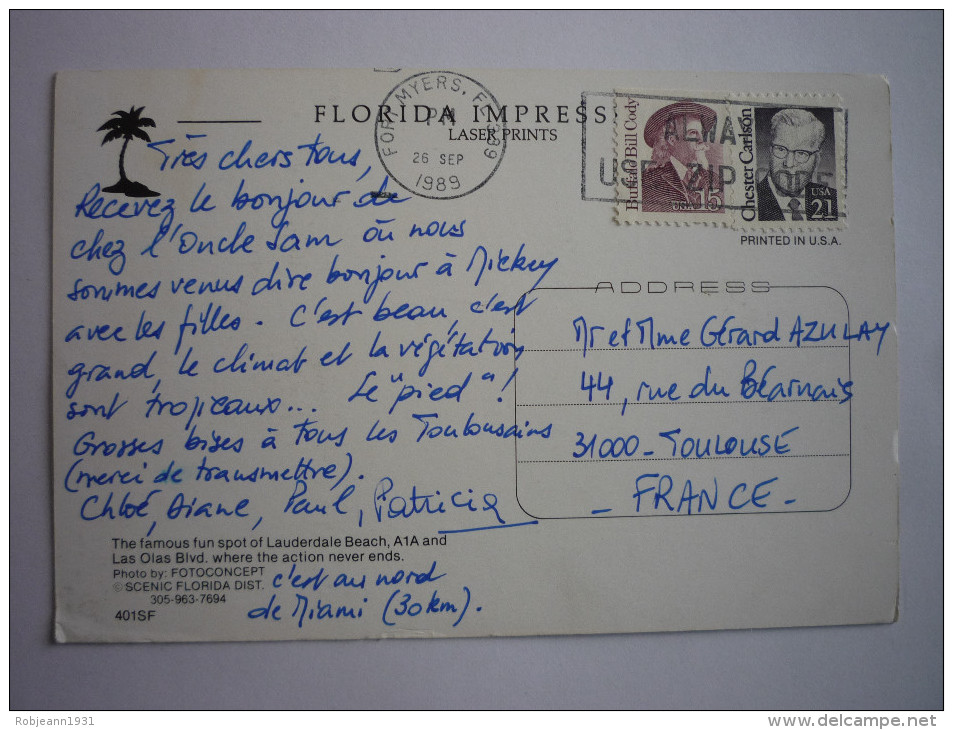 FLORIDA IMPRESS
LASER PRINTS
FORT MYERS, FL 339
PM
26 SEP
1989
ALWAY
USE ZIP CODE
Buffalo Bill Cody
USA 15
Chester Carlson
USA
21
PRINTED IN U.S.A.
Très chers tous,
Recevez le bonjour de
chez l'Oncle Sam où nous
sommes venus dire bonjour à Mickey
avec les filles. C'est beau, c'est
grand, le climat et la végétation
sont tropicaux... Le "pied"!
Grosses bises à tous les Toulousains
(merci de transmettre).
Chloé, Diane, Paul, Patricia
ADDRESS
Mr et Mme Gérard AZULAY
44, rue du Béarnais
31000 - TOULOUSE
- FRANCE -
The famous fun spot of Lauderdale Beach, A1A and
Las Olas Blvd. where the action never ends.
Photo by: FOTOCONCEPT
© SCENIC FLORIDA DIST.
305-963-7694
401SF
c'est au nord
de Miami (30km).
Robjeann1931
delcampe.net